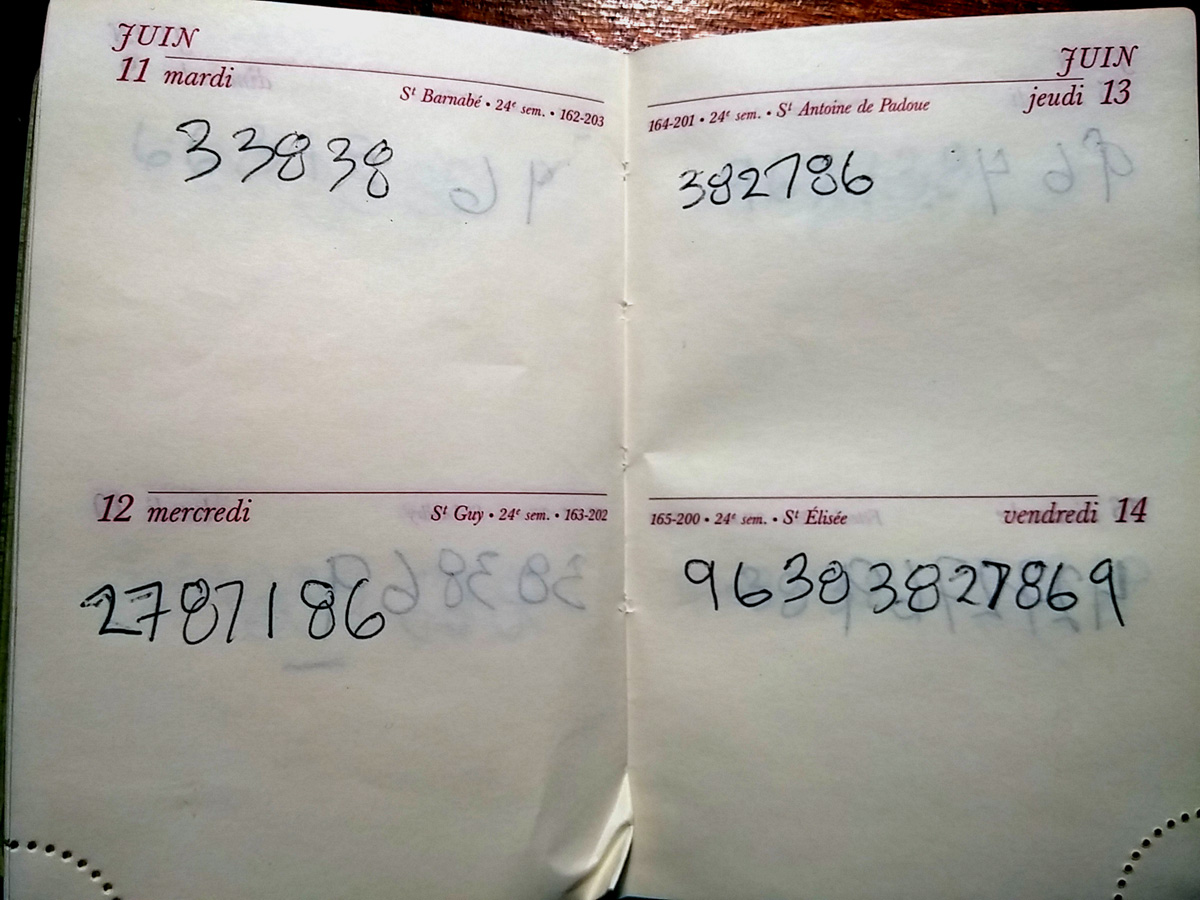 JUIN
11 mardi
Sᵗ Barnabé • 24ᵉ sem. • 162-203
33838
12 mercredi
Sᵗ Guy • 24ᵉ sem. • 163-202
2787186
JUIN
jeudi 13
164-201 • 24ᵉ sem. • Sᵗ Antoine de Padoue
382786
165-200 • 24ᵉ sem. • Sᵗ Élisée
vendredi 14
96383827869